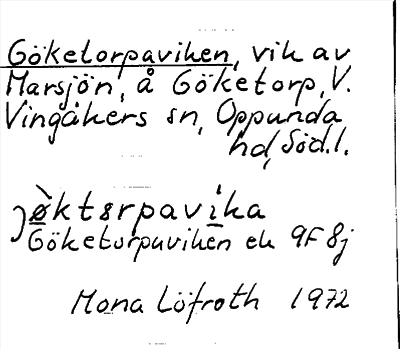 Göketorpaviken, vik av
Marsjön, å Göketorp, V.
Vingåkers sn, Oppunda
hd, Söd.l.
jø̀ktɘrpavika
Göketorpaviken ek 9F8j
Mona Löfroth 1972